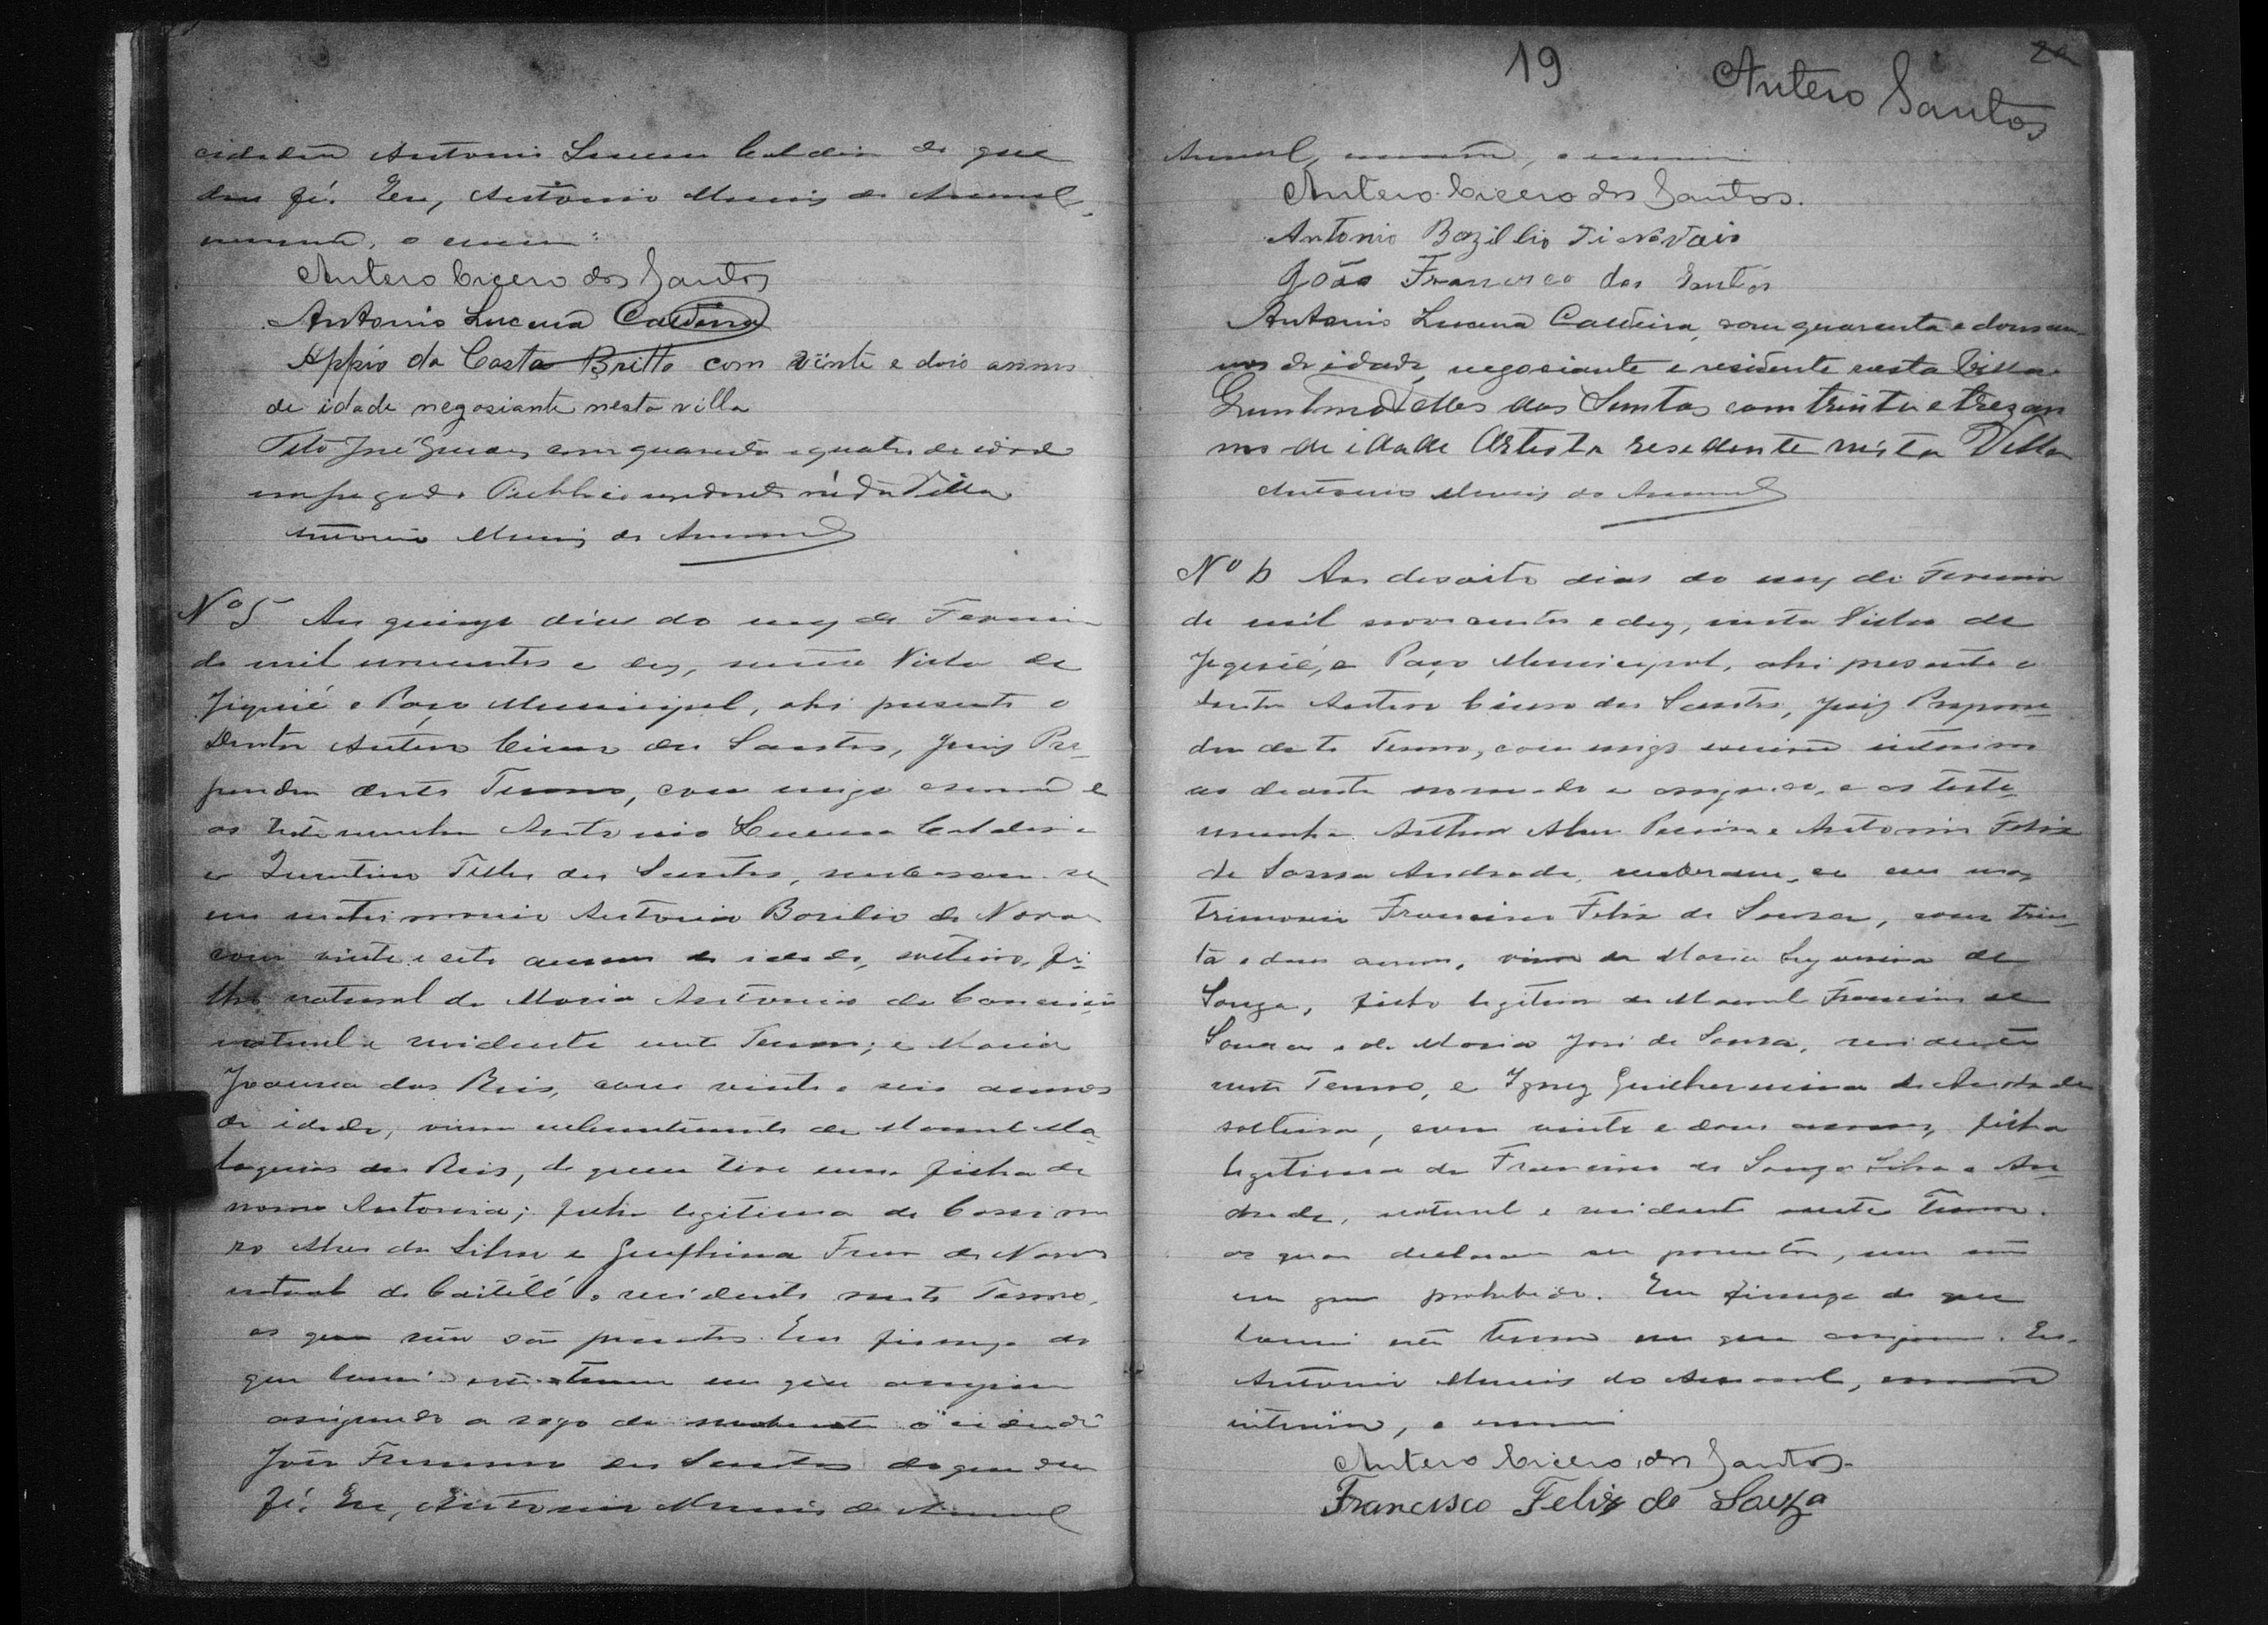 cidadão Antonio Lucena Caldeira do que
dou fé. Eu, Antonio Muniz do Amaral,
escrivão, o escrevi.
Antero Cicero dos Santos
Antonio Lucena Caldeira
Appio da Costa Britto com vinte e dois annos
de idade negosiante nesta villa
Tito José com quarenta e quatro de idade
empregado Publico nesta Villa
Antonio Muniz do Amaral
Nº 5 Aos quinze dias do mez de Fevereiro
de mil novecentos e dez, nesta Villa de
Jequié e Paço Municipal, ahi presente o
Doutor Antero Cicero dos Santos, Juiz Pre-
parador deste Termo, com migo escrivão e
as testemunhas Antonio Lucena Caldeira
e Quintino Telles dos Santos, receberam-se
em matrimonio Antonio Bazilio de Novaes
com vinte e sete annos de idade, solteiro, fi-
lho natural de Maria Antonia da Conceição
natural e residente neste Termo; e Maria
Joanna dos Reis, com vinte e seis annos
de idade, viuva de Manoel Ma-
laquias dos Reis, de quem teve uma filha de
nome Antonia; filha legitima de Cassimi-
ro Alves da Silva e Josephina de Novaes
natural de Caitété e residente neste Termo,
os quaes não são parentes. Em firmeza do
que lavrei este termo em que assignam
assignando a rogo da o cidadão
João Francisco dos Santos do que dou
fé. Eu, Antonio Muniz do Amaral
19
Antero Santos
Amaral, escrivão, o escrevi
Antero Cicero dos Santos.
Antonio Bazillio Di Novais
João Francisco dos Santos
Antonio Lucena Caldeira, com quarenta e dous an-
nos de idade, negociante e residente nesta Villa
Telles dos Santos com trinta e trez an
nos de idade Artista resedente nésta Villa
Antonio Muniz do Amaral
Nº 6 Aos desoito dias do mez de Fevereiro
de mil novecentos e dez, nesta Villa de
Jequié, e Paço Municipal, ahi presente o
doutor Antero Cicero dos Santos, Juiz Prepara-
dor deste Termo, com migo escrivão interino
ao deante nomeado e assignado, e as teste-
munhas Arthur Alves Pereira e Antonio Felix
de Sousa Andrade, receberam-se em ma-
trimonio Francisco Felix de Sousa, com trin-
ta e dous annos, viuvo de Maria de
Souza, filho legitimo de Manoel Francisco de
Souza e de Maria José de Sousa, residente
neste Termo, e Ignez Guilhermina de Andrade
solteira, com vinte e dous annos, filha
legitima de Francisco de Souza Silva e An-
drade, natural e residente neste Termo.
os quaes declararam ser parentes, mas não
em grau prohibido. Em firmeza do que
lavrei este termo em que assignam. Eu,
Antonio Muniz do Amaral, escrivão
interino, o escrevi
Antero Cicero dos Santos.
Francisco Felix de Souza